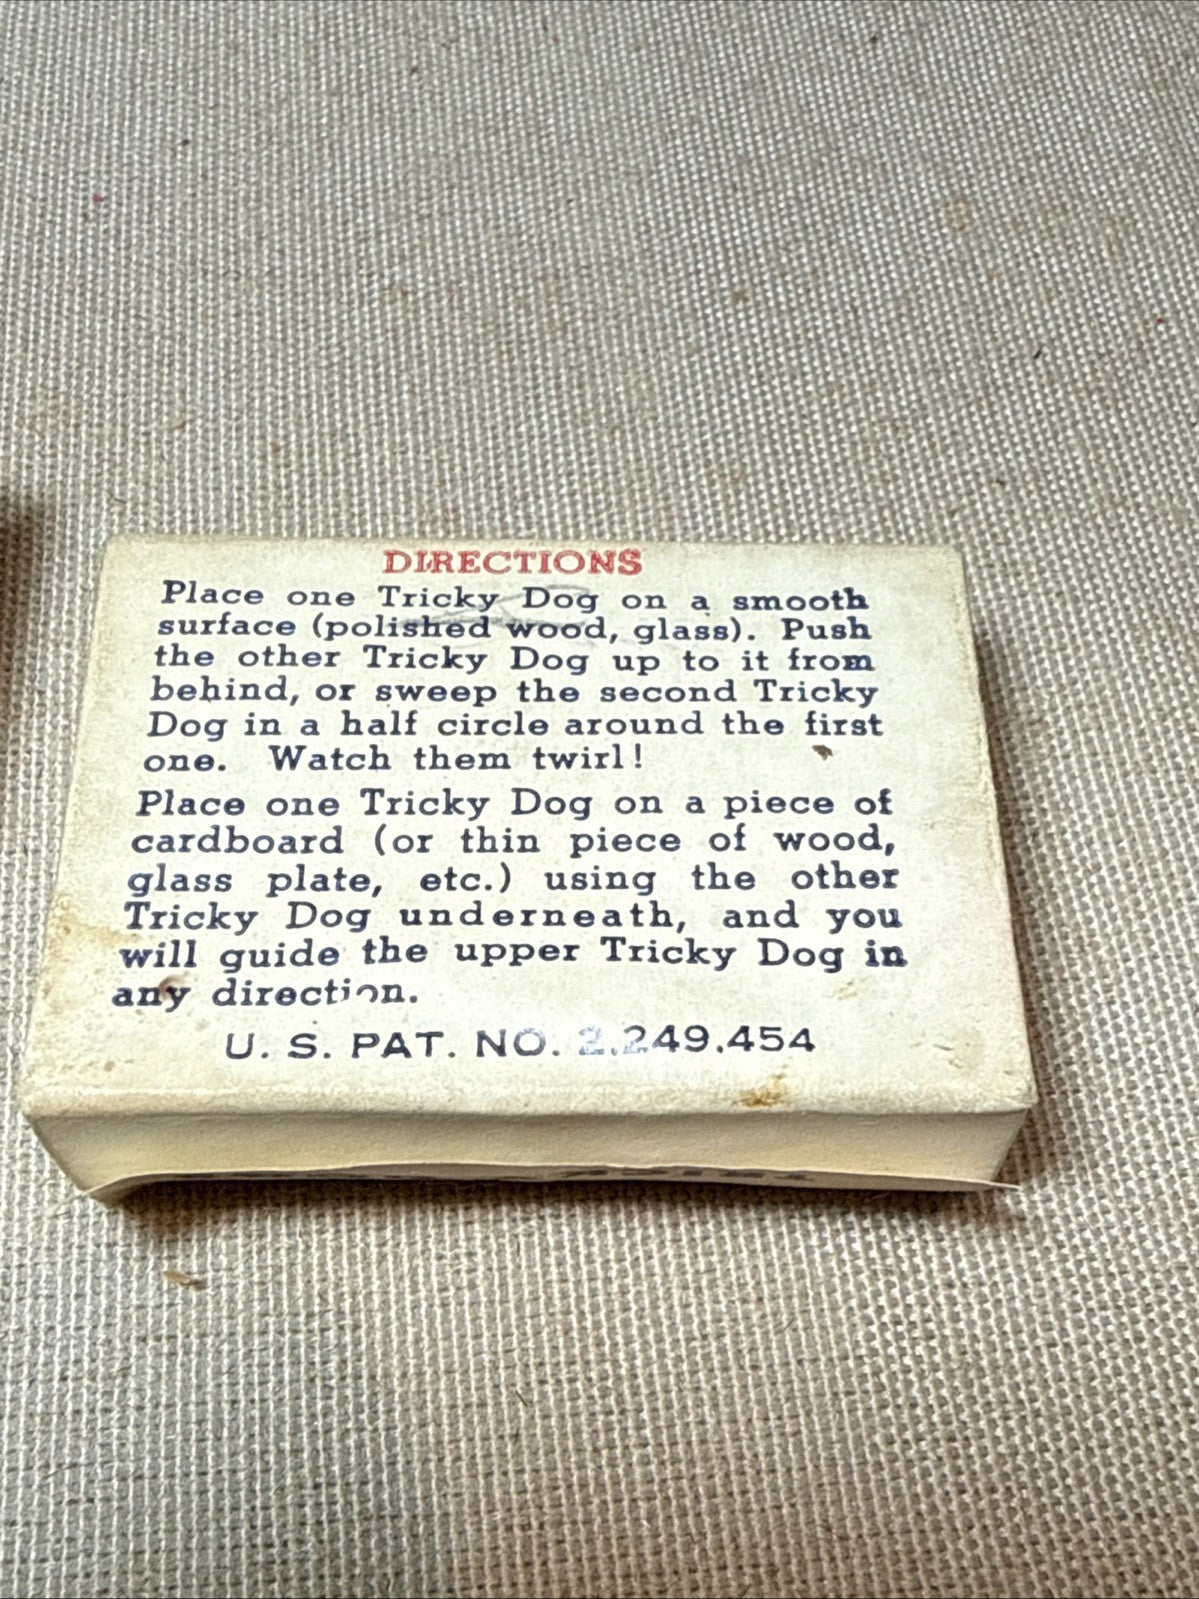 DIRECTIONS
Place one Tricky Dog on a smooth
surface (polished wood, glass). Push
the other Tricky Dog up to it from
behind, or sweep the second Tricky
Dog in a half circle around the first
one. Watch them twirl!
Place one Tricky Dog on a piece of
cardboard (or thin piece of wood,
glass plate, etc.) using the other
Tricky Dog underneath, and you
will guide the upper Tricky Dog in
any direction.
U. S. PAT. NO. 2,249,454